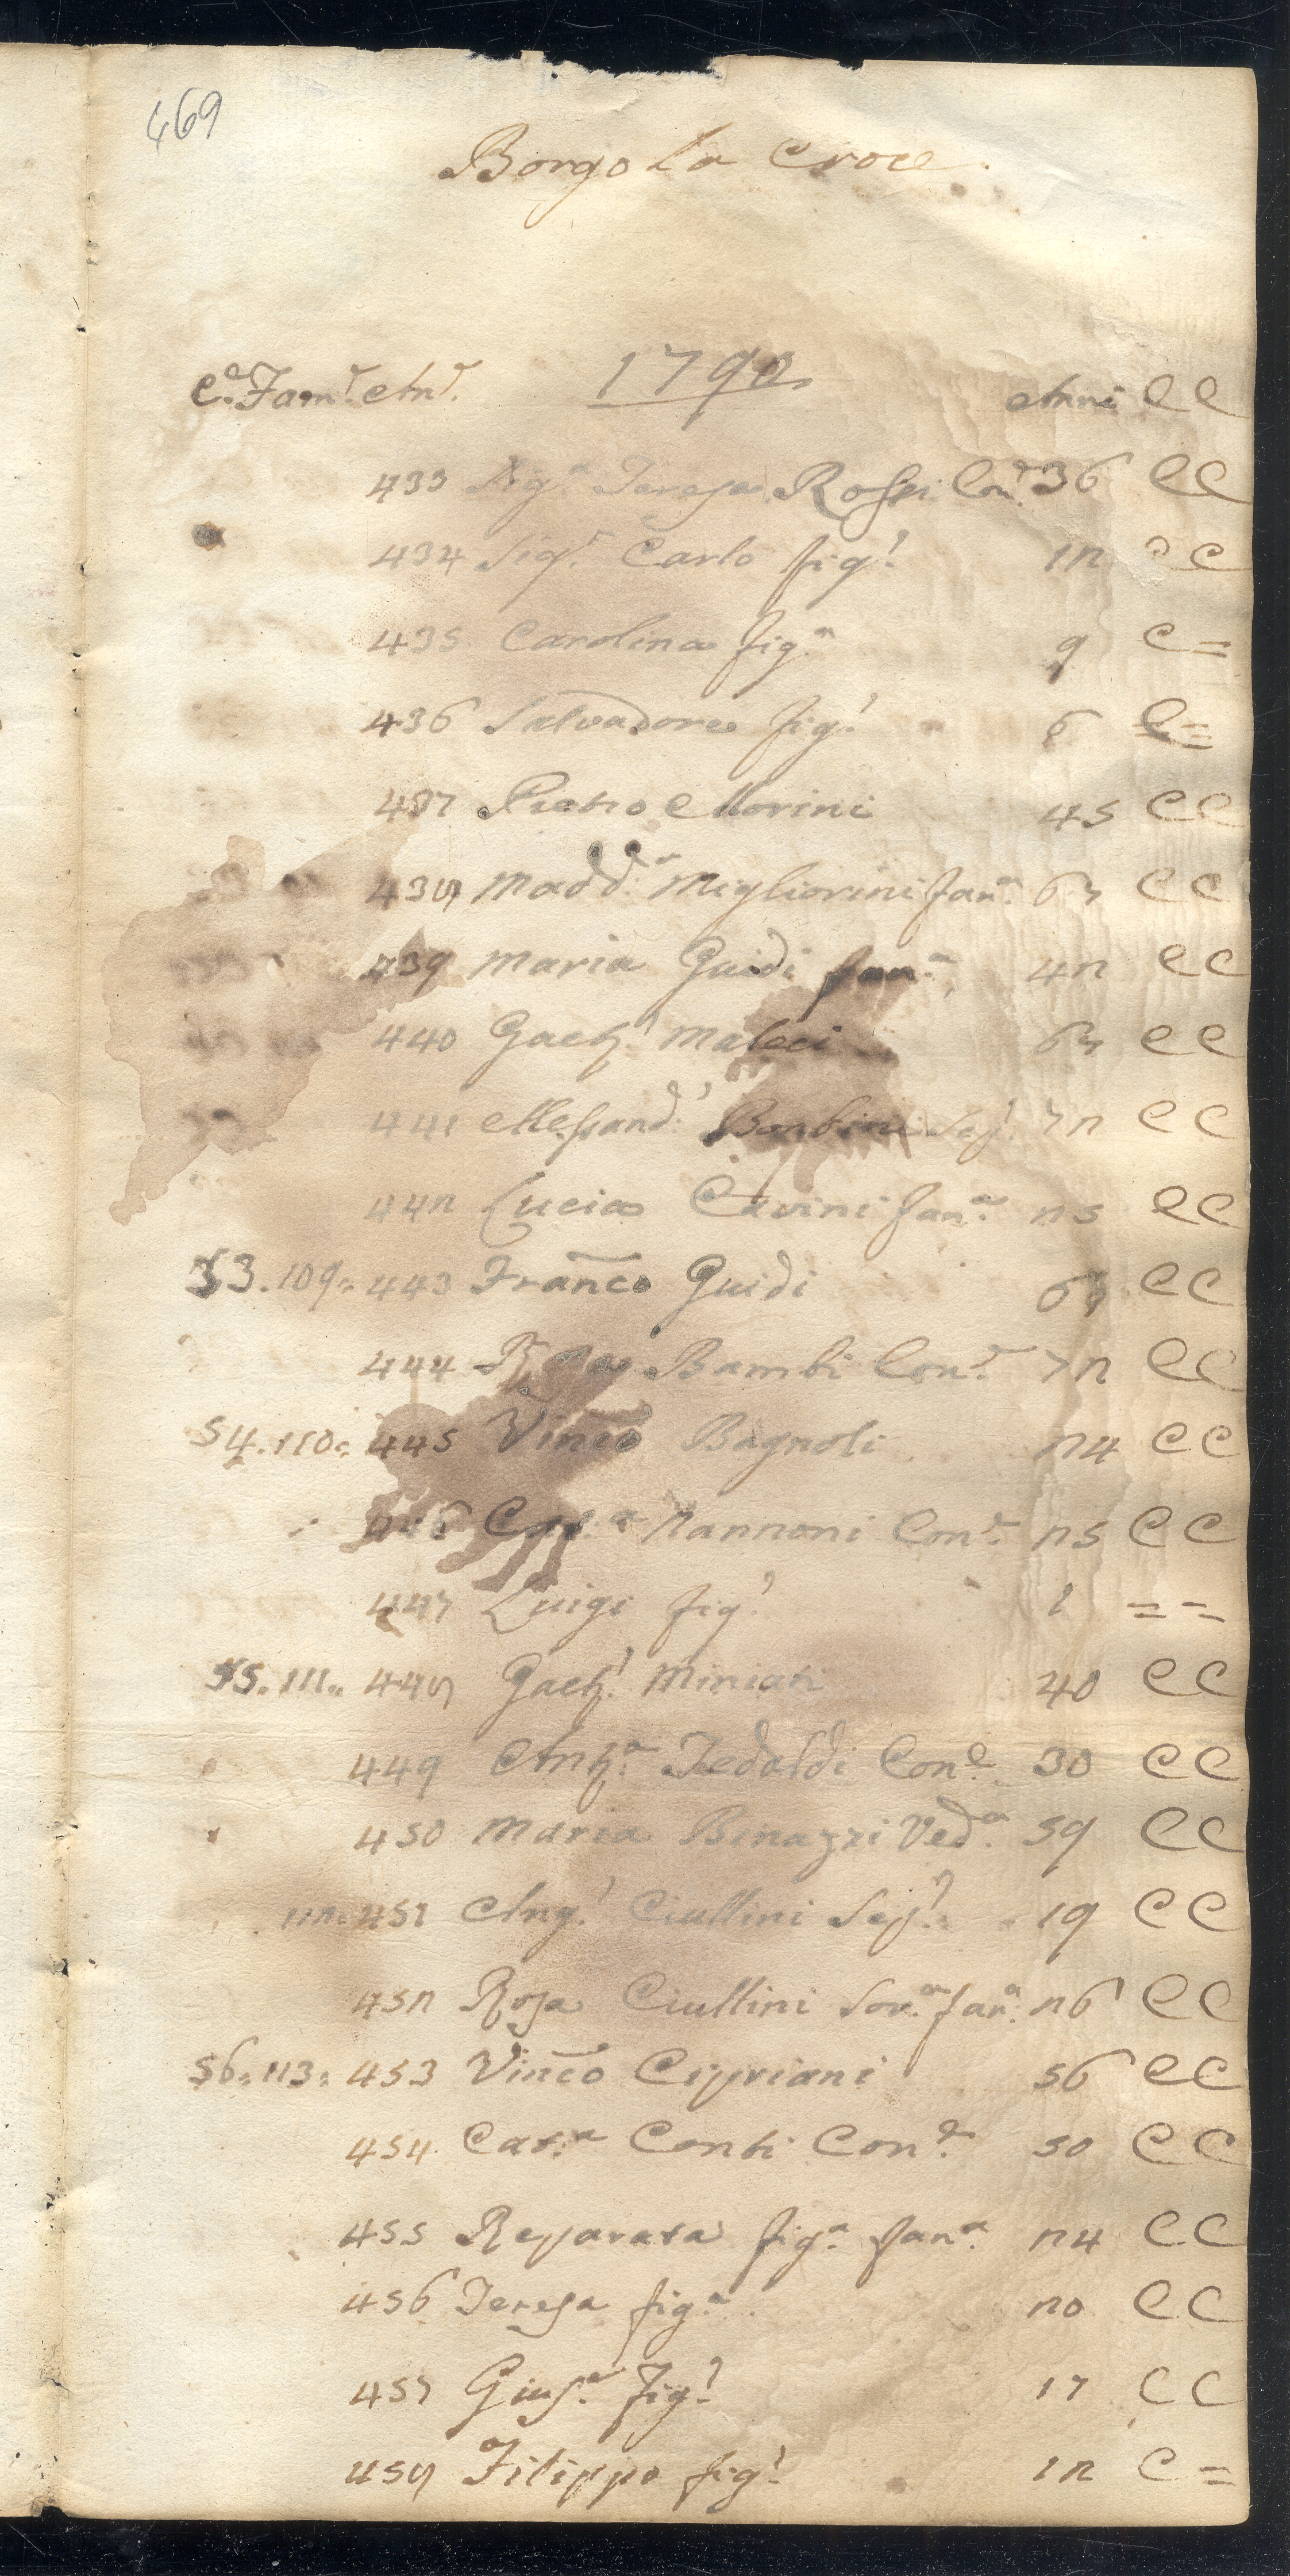 469
Borgo La Croce.
1790
C.ª Fam.e An.e Anni C C
433 Sig.ª Teresa Rossi Con.e 36 C C
434 Sig.r Carlo fig.o 12 C C
435 Carolina fig.ª 9 C =
436 Salvadore fig.o 6 C =
437 Pietro Morini 45 C C
438 Madd.ª Migliorini fan.ª C C
439 Maria Guidi fan.ª 42 C C
440 Gaet.o Maleci C C
441 Alessand.o Bonbini Ser.o 72 C C
442 Lucia Cavini fan.ª 25 C C
53. 109. 443 Franco Guidi C C
444 Rosa Bambi Con.e 72 C C
54. 110. 445 Vinco Bagnoli 24 C C
446 Nannoni Con.e 25 C C
447 Luigi fig.o 1 = =
55. 111. 448 Gaet.o Miniati 40 C C
449 Ant.ª Tedaldi Con.e 30 C C
450 Maria Binazzi Ved.ª 59 C C
112. 451 Ang.o Ciullini Ser.o 19 C C
452 Rosa Ciullini Sor.ª fan.ª 26 C C
56. 113. 453 Vinco Cipriani 56 C C
454 Cat.ª Conti Con.e 50 C C
455 Reparata fig.ª fan.ª 24 C C
456 Teresa fig.ª 20 C C
457 Gius.e fig.o 17 C C
458 Filippo fig.o 12 C =